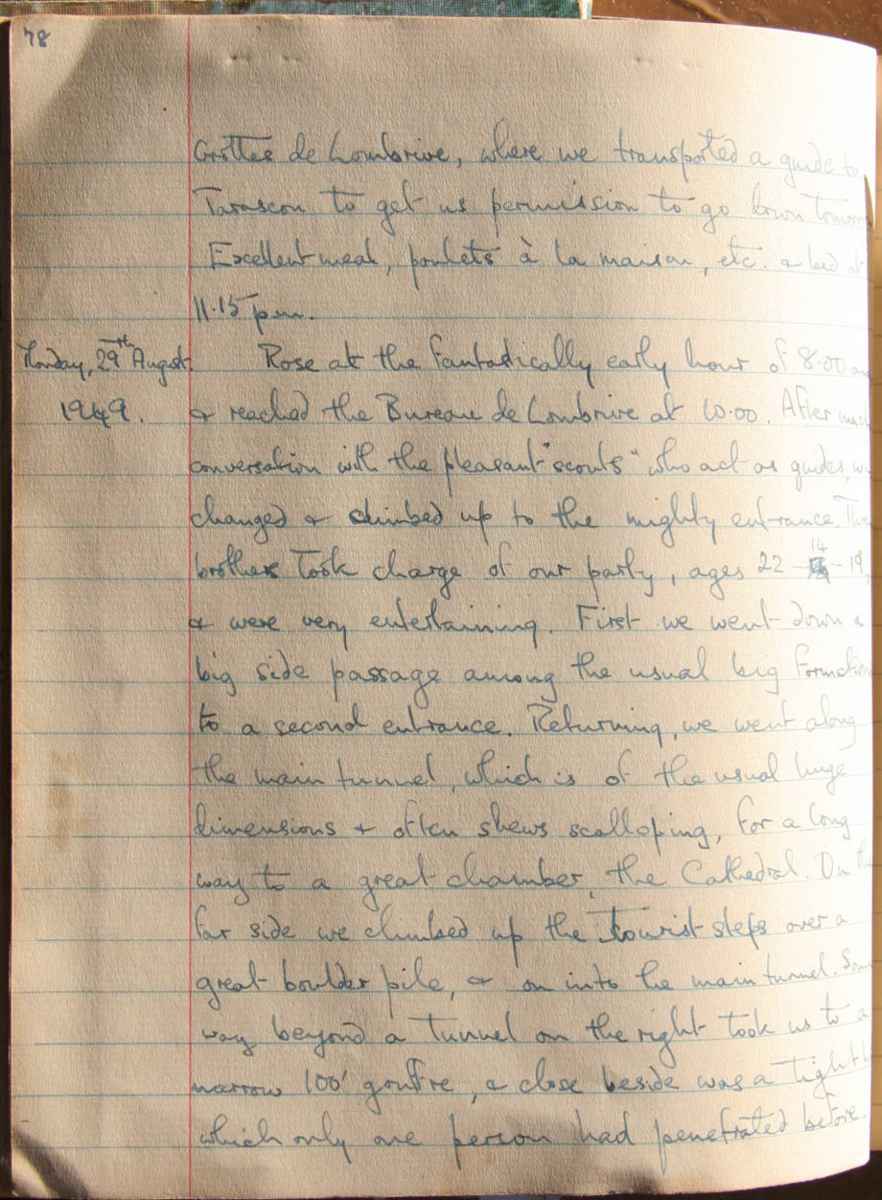 78
Grottes de Lombrive, where we transported a guide to
Tarascon to get us permission to go down
Excellent meal, poulets à la maison, etc. & bed at
11.15 pm.
Monday, 29th August Rose at the fantastically early hour of 8.00
1949. & reached the Bureau de Lombrive at 10.00. After
conversation with the pleasant "scouts" who act as guides, we
changed & climbed up to the mighty entrance.
brothers took charge of our party, ages 22 - 14 - 19,
& were very entertaining. First we went down a
big side passage among the usual big
to a second entrance. Returning, we went along
the main tunnel, which is of the usual huge
dimensions & often shews scalloping, for a long
way to a great chamber, the Cathedral. On
far side we climbed up the tourist steps over a
great boulder pile, & on into the main tunnel.
way beyond a tunnel on the right took us to a
narrow 100' gouffre, & close beside was a tight
which only one person had penetrated before.